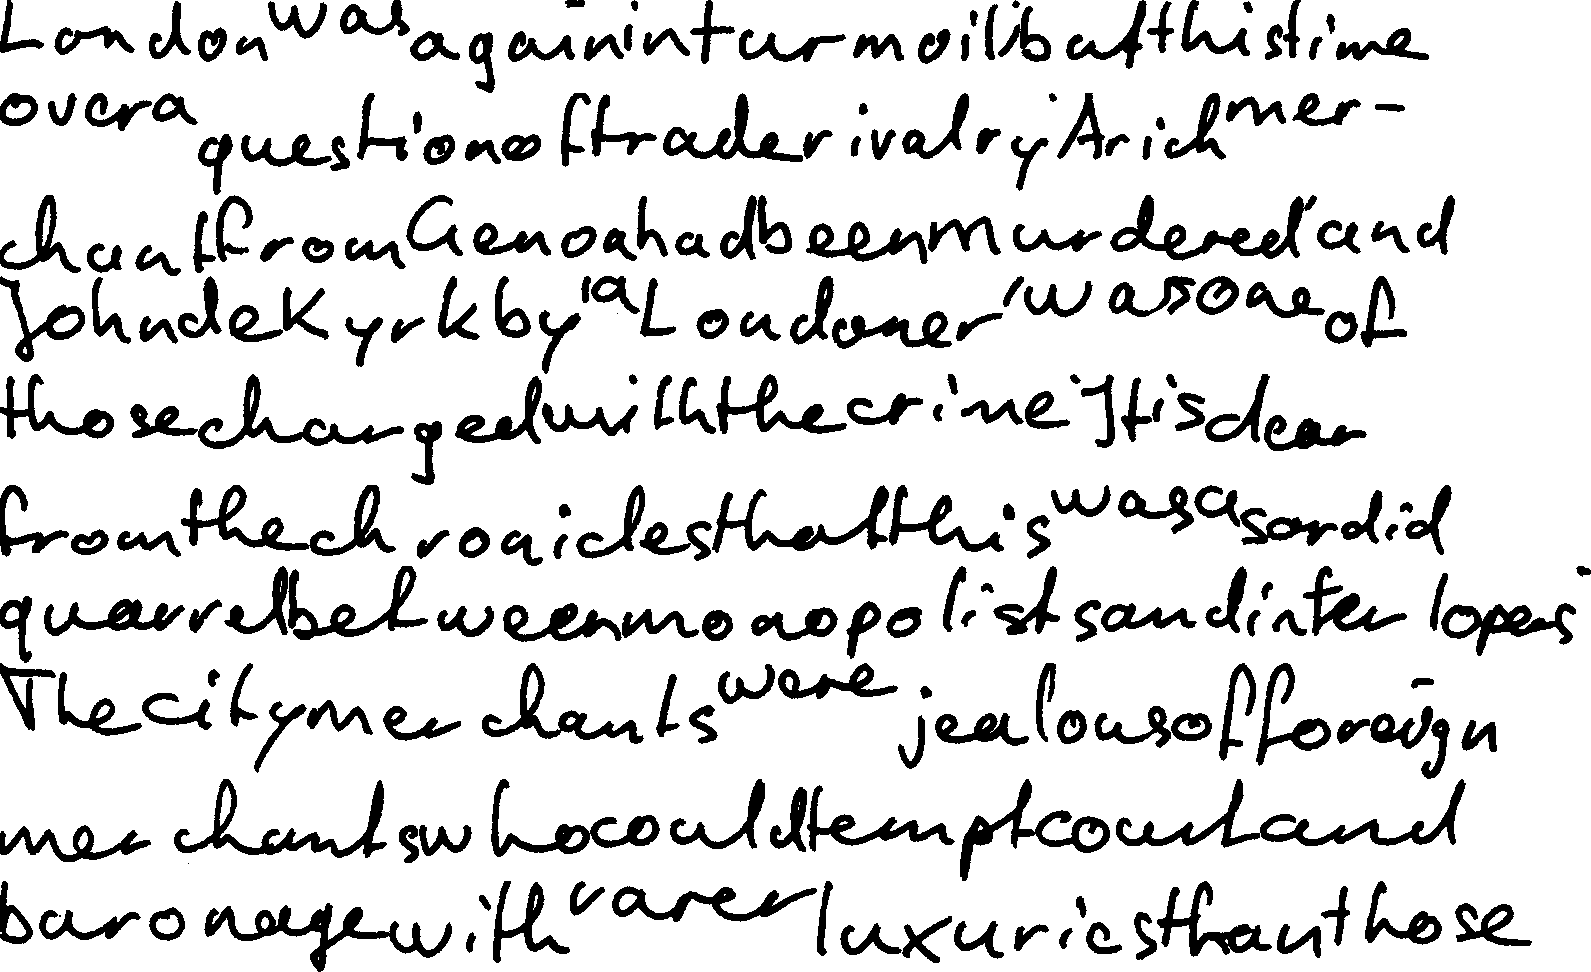 London was again in turmoil, but this time
over a question of trade rivalry. A rich mer-
chant from Genoa had been murdered, and
John de Kyrkby, a Londoner, was one of
those charged with the crime. It is clear
from the chronicles that this was a sordid
quarrel between monopolists and interlopers.
The city merchants were jealous of foreign
merchants who could tempt court and
baronage with rarer luxuries than those